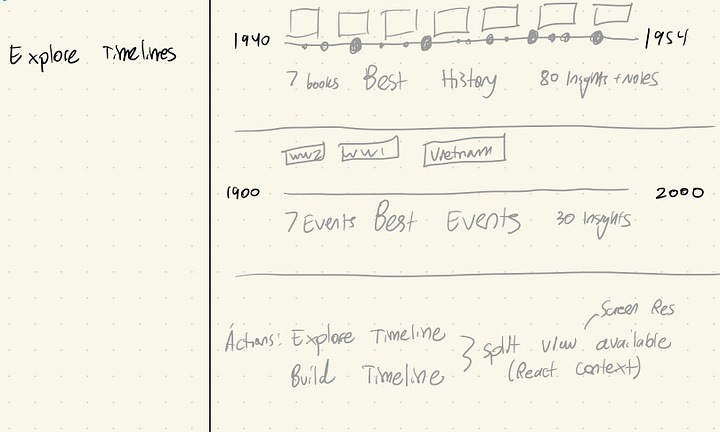 Explore Timelines
1940 1954
7 books Best History 80 Insights + Notes
WW2 WW1 Vietnam
1900 2000
7 Events Best Events 30 Insights
Screen Res
Actions: Explore Timeline } split view available
Build Timeline (React Context)